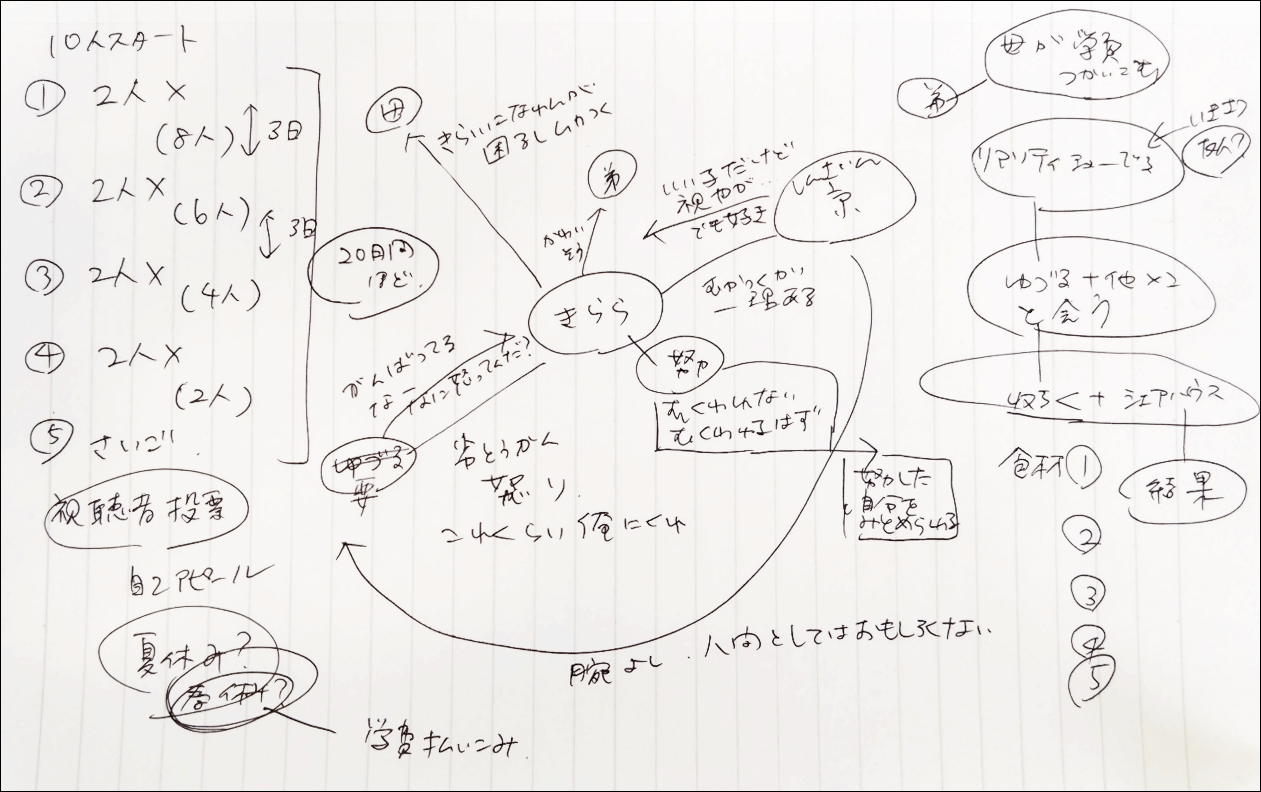 10人スタート
① 2人×
(8人) 3日
② 2人×
(6人) 3日
③ 2人×
(4人)
④ 2人×
(2人)
⑤ さいご
20日間
ほど.
視聴者投票
自己アピール
夏休み?
春休み?
学費払いこみ
母
きらいになれんが
困るしムカつく
弟
かわい
そう
いい子だけど
視やが..
でも好き
しんまいん
京
むかつくが
一理ある
きらら
努力
むくわれない
むくわれるはず
努力した
自分を
みとめられる
がんばってる
な なに怒ってんだ?
ゆづる
要
劣とうかん
怒り
これくらい俺にくれ
腕よし.人間としてはおもしろくない
母が学費
つかいこむ
弟
リアリティショーでる
いきさつ
なん?
ゆづる+他×2
と会う
収ろく+シェアハウス
食材①
②
③
④
⑤
結果